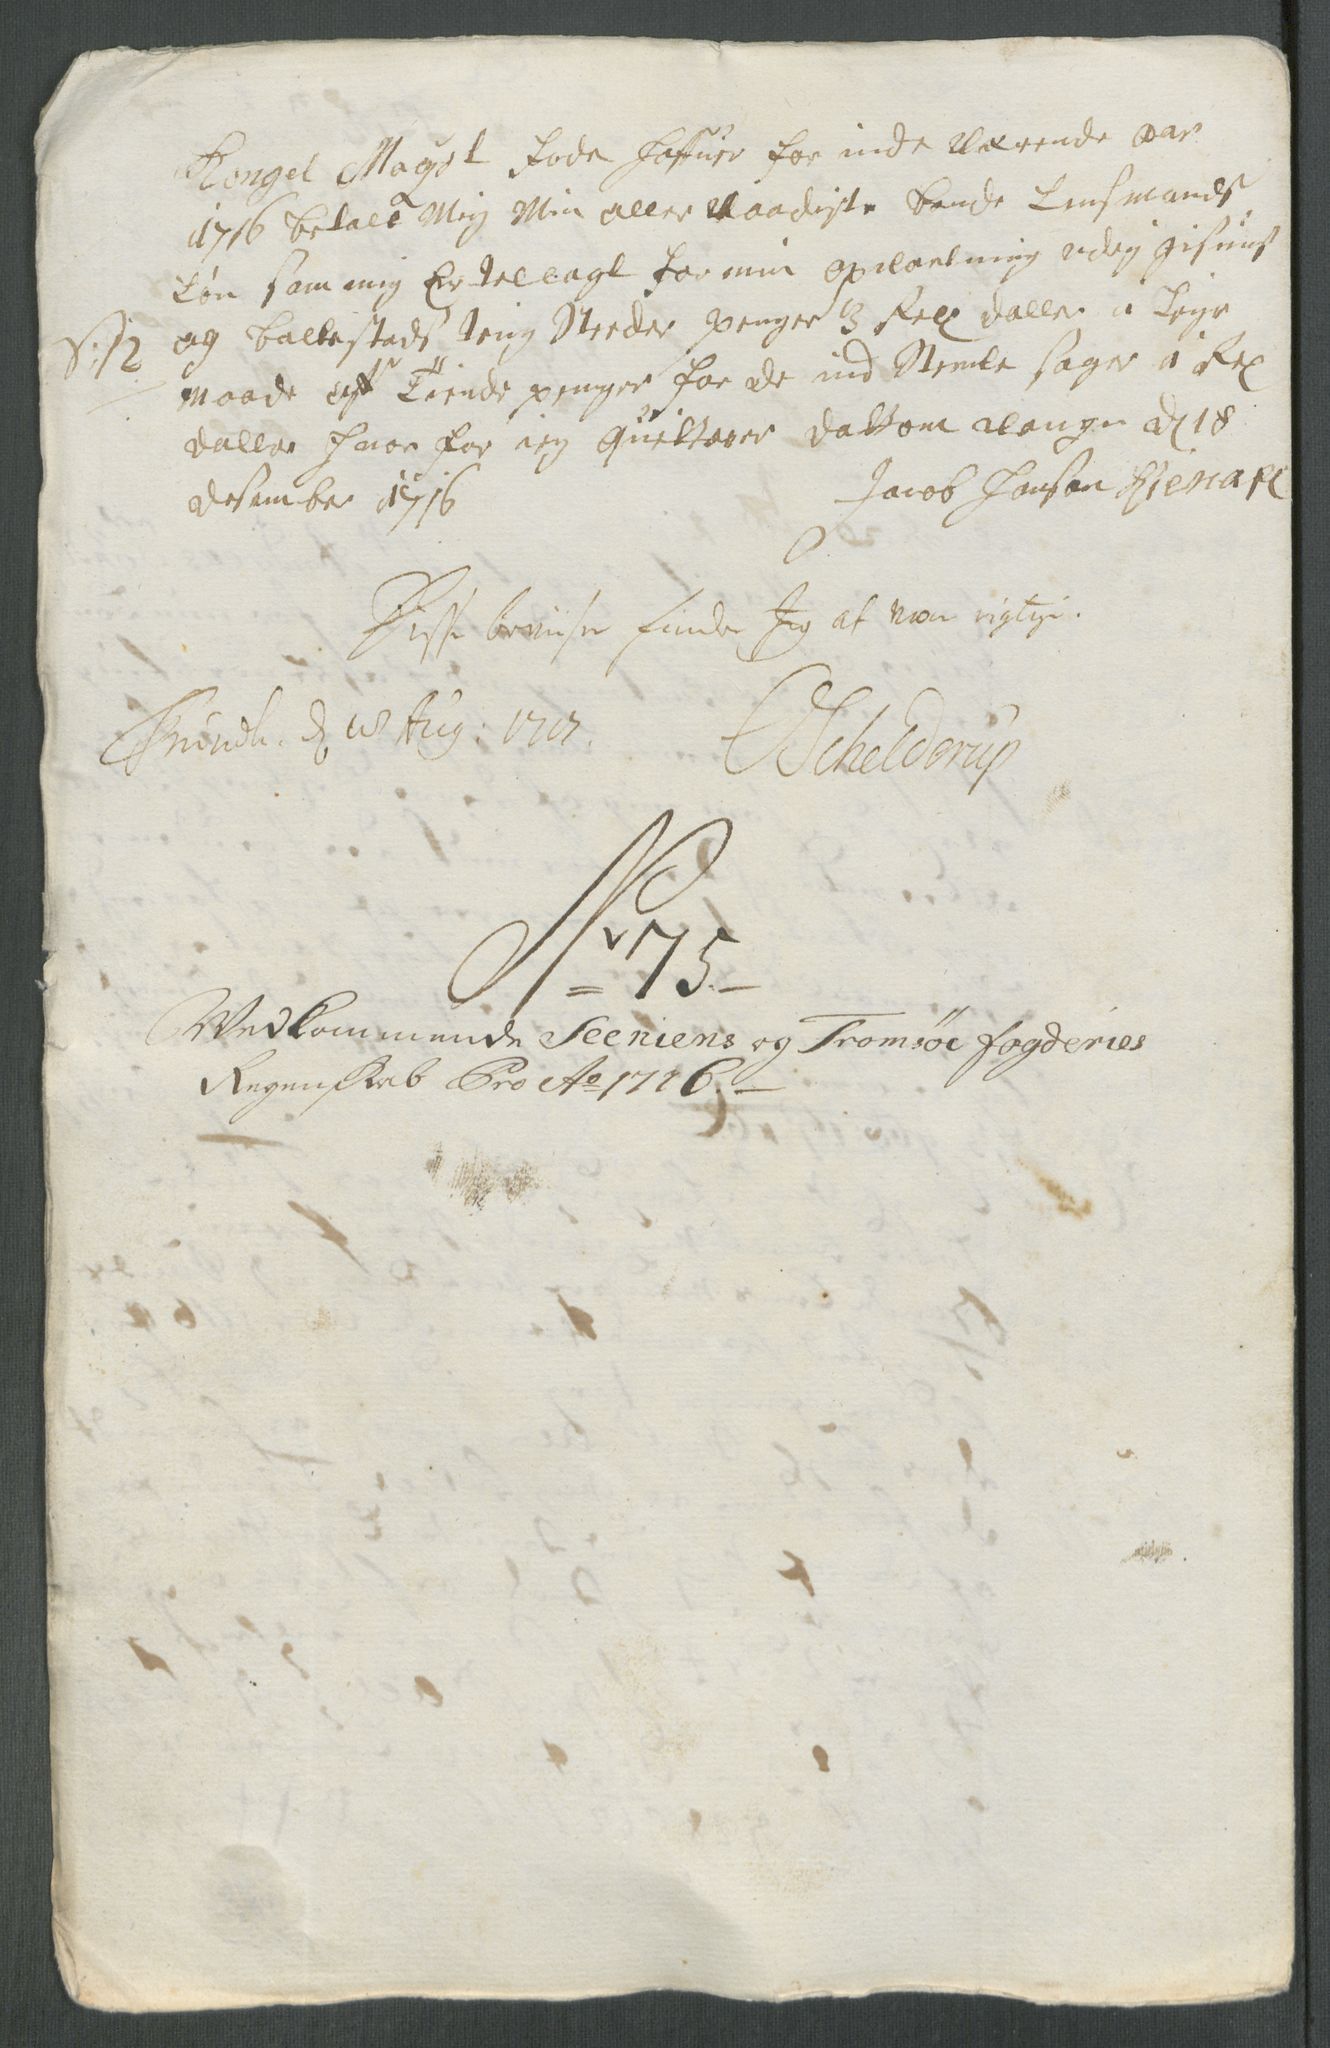 Kongel Mayst fode haffuer for inde Værende aar
1716 betalt Mig Min aller Naadigste bonde Lensmands
Løn som mig Er tellagt for min opvartning udej gisuns
og ballestads ting Steder penger 3 Rex daller i Lige
maade aff Tiende penger for de ind Stemte sager 1 Rex
daller huor for ieg Quitterer Dattom Vangen d 18
desember 1716 Jacob Hansen
Disse beviiser finder Jeg at være rigtige.
Trundh. d 18 Aug: 1717. Schelderup
No 75.
Vedkommende Seeniens og Tromsöe fogderies
Regenskab Pro Ao 1716.